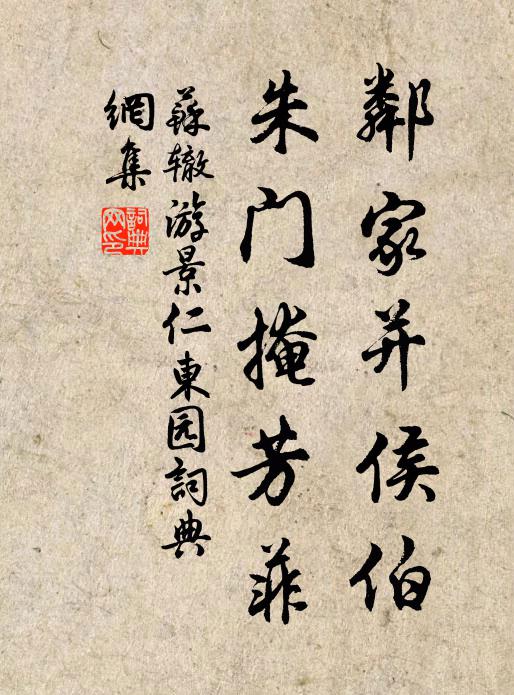 鄰家并侯伯
朱门掩芳菲
蘇辙游景仁東园詞典
網集
詞典网印